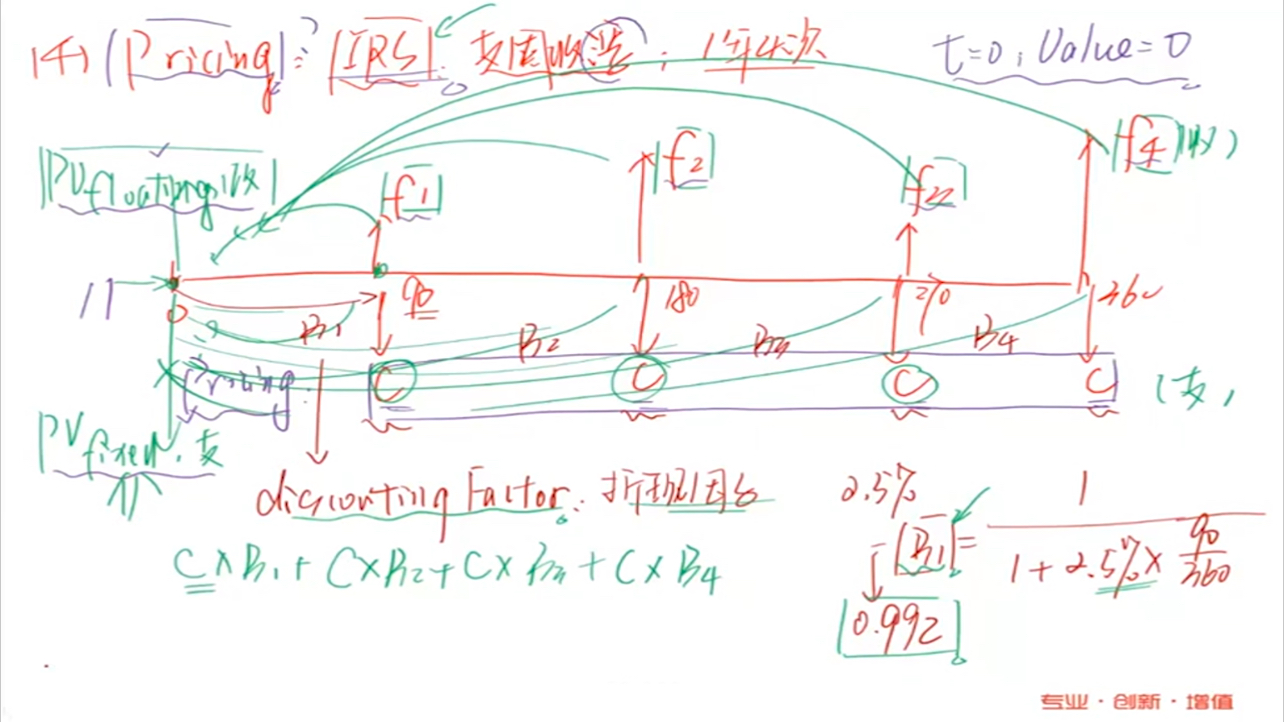 (Pricing): IRS. 支固收浮; 1年4次 t=0; Value=0
PVfloating, 收 f1 f2 f3 f4 (收)
0 90 180 270 360
B1 B2 B3 B4
Pricing C C C C (支)
PVfixed, 支
discounting Factor: 折现因子 2.5%
B1 = 1 / (1 + 2.5% × 90/360)
C×B1 + C×B2 + C×B3 + C×B4
0.992
专业·创新·增值